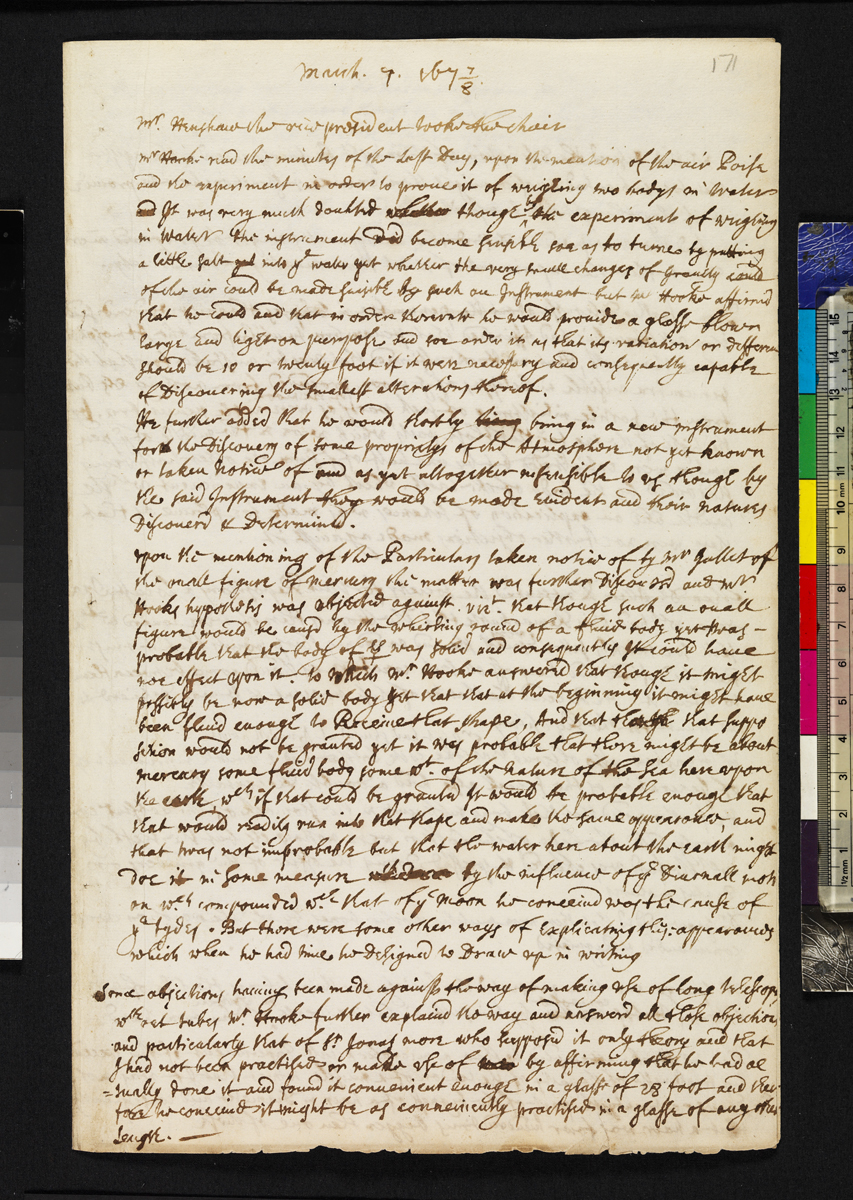 171
March. 7. 167 7/8.
Mr. Henshaw the vice president tooke the chair
Mr Hooke read the minutes of the Last Day, upon the mention of the air Poise
and the experiment in order to prove it of weighing two bodys in water
and It was very much doubted whether though by the experiment of weighing
in water the instrument did become sensible soe as to turne by putting
a little salt into ye water yet whether the very small changes of gravity
of the air could be made sensible by such an Instrument but mr Hooke affirmd
that he could and that in order thereunto he would provide a glasse blown
large and light on purpose and soe order it as that its variation or differen
should be 10 or twenty foot if it were necessary and consequently capable
of Discovering the smallest alterations thereof.
He further added that he would shortly bring in a new instrument
for the Discovery of some proprietys of the Atmosphere not yet known
or taken notice of and as yet alltogether insensible to us though by
the said Instrument they would be made Evident and their natures
Discoverd & Determind.
upon the mentioning of the Particulars taken notice of by Mr Gallet of
the ovall figure of mercury the matter was further Discoursd and mr
Hooks hypothesis was objected against. vizt. that though such an ovall
figure would be causd by the whirling round of a fluid body yet twas
probable that the body of ☿ was solid and consequently It could have
noe effect upon it. to which Mr. Hooke answerd that though it might
possibly be now a solid body yet that at the beginning it might have
been fluid enough to Receive that shape, And that though that suppo
sition would not be granted yet it was probable that there might be about
mercury some fluid body somewt. of the nature of the sea here upon
the earth wch if that could be granted It would be probable enough that
that would readily run into that shape and make the same appearance, and
that twas not improbable but that the water here about the earth might
doe it in some measure by the influence of ye Diurnall moti
on wch compounded wth that of ye Moon he conceivd was the cause of
ye tydes. But there were some other ways of Explicating this appearances
which when he had time he designed to Draw up in writing
Some objections having been made against the way of making use of long telescopes
wthout tubes Mr Hooke further explaind the way and answerd all those objections
and particularly that of Sr Jonas more who supposed it only theory and that
I had not been practised or made use of by affirming that he had ac
=tually done it and found it convenient enough in a glasse of 28 foot and
he conceivd it might be as conveniently practised in a glasse of any other
Length.